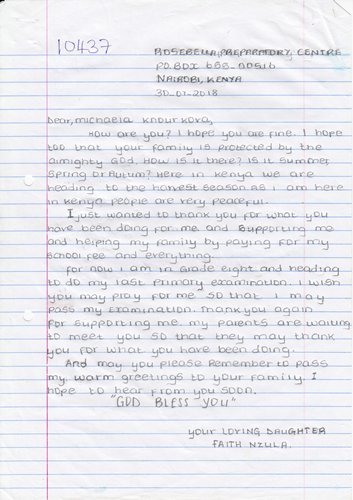 10437
ROSEBELLA PREPARATORY CENTRE
P.O.BOX 685-00516
NAIROBI, KENYA
30-07-2018
Dear, michaela knourkova,
How are you? I hope you are fine. I hope
too that your family is protected by the
almighty GOD. How is it there? Is it summer
Spring or Autum? Here in Kenya we are
heading to the harvest season as I am here
in Kenya people are very peaceful.
I just wanted to thank you for what you
have been doing for me and supporting me
and helping my family by paying for my
school fee and everything.
For now I am in Grade eight and heading
to do my last primary examination. I wish
you may pray for me so that I may
pass my Examination. Thank you again
for supporting me. my parents are waiting
to meet you so that they may thank
you for what you have been doing.
And may you please Remember to pass
my, warm greetings to your family. I
hope to hear from you soon.
"GOD BLESS YOU"
your Loving DAUGHTER
FAITH NZULA.